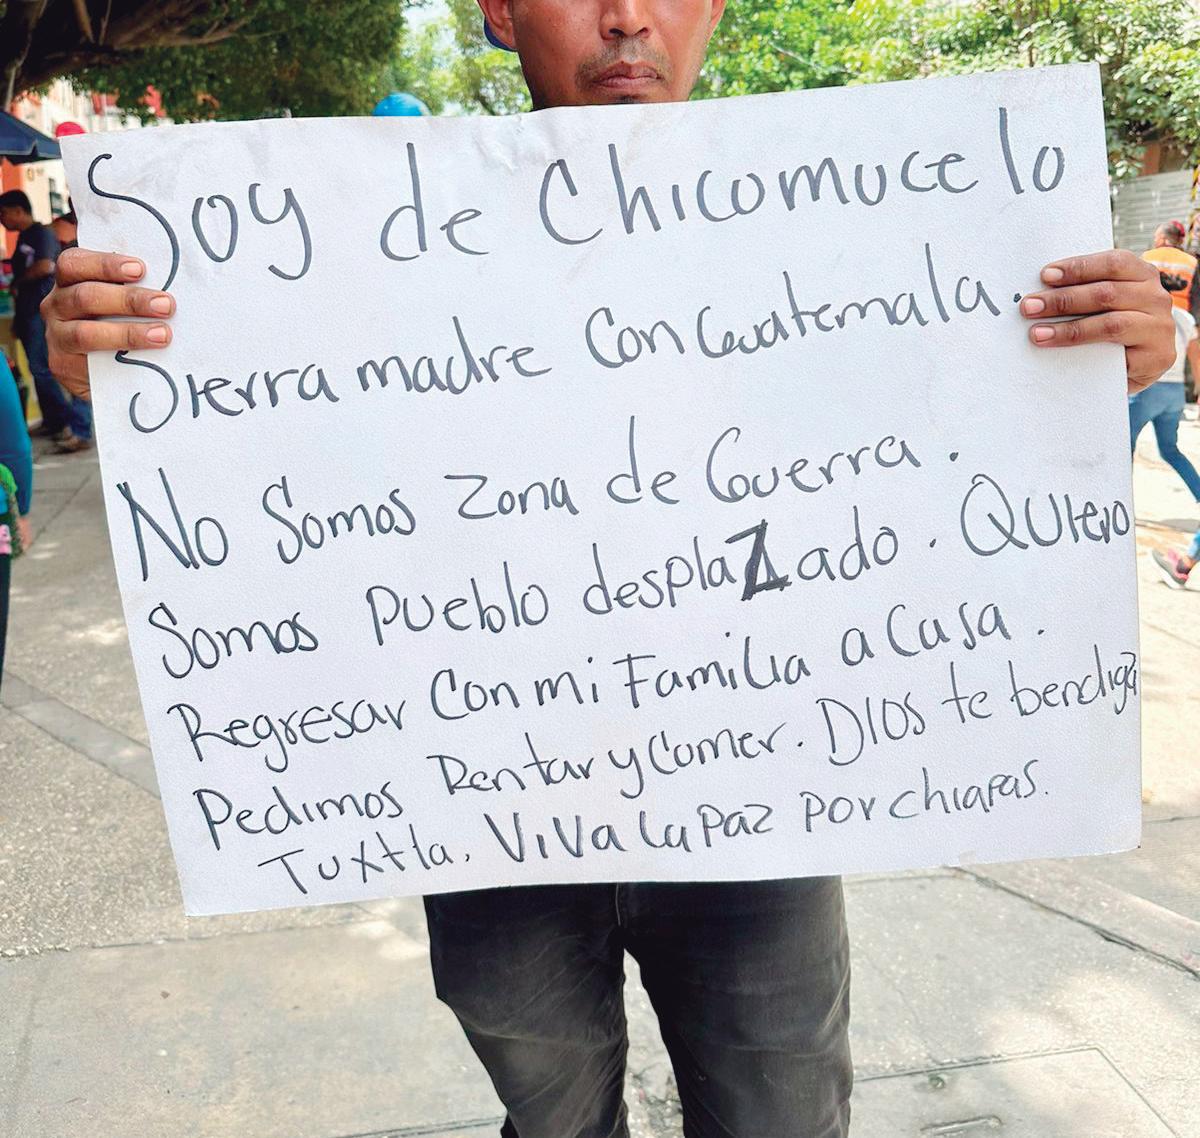 Soy de Chicomucelo
Sierra madre Con Guatemala.
No Somos Zona de Guerra.
Somos Pueblo desplaZado. Quiero
Regresar Con mi Familia a Casa.
Pedimos Rentar y Comer. DIOS te bendiga
Tuxtla. ViVa La Paz Por chiapas.